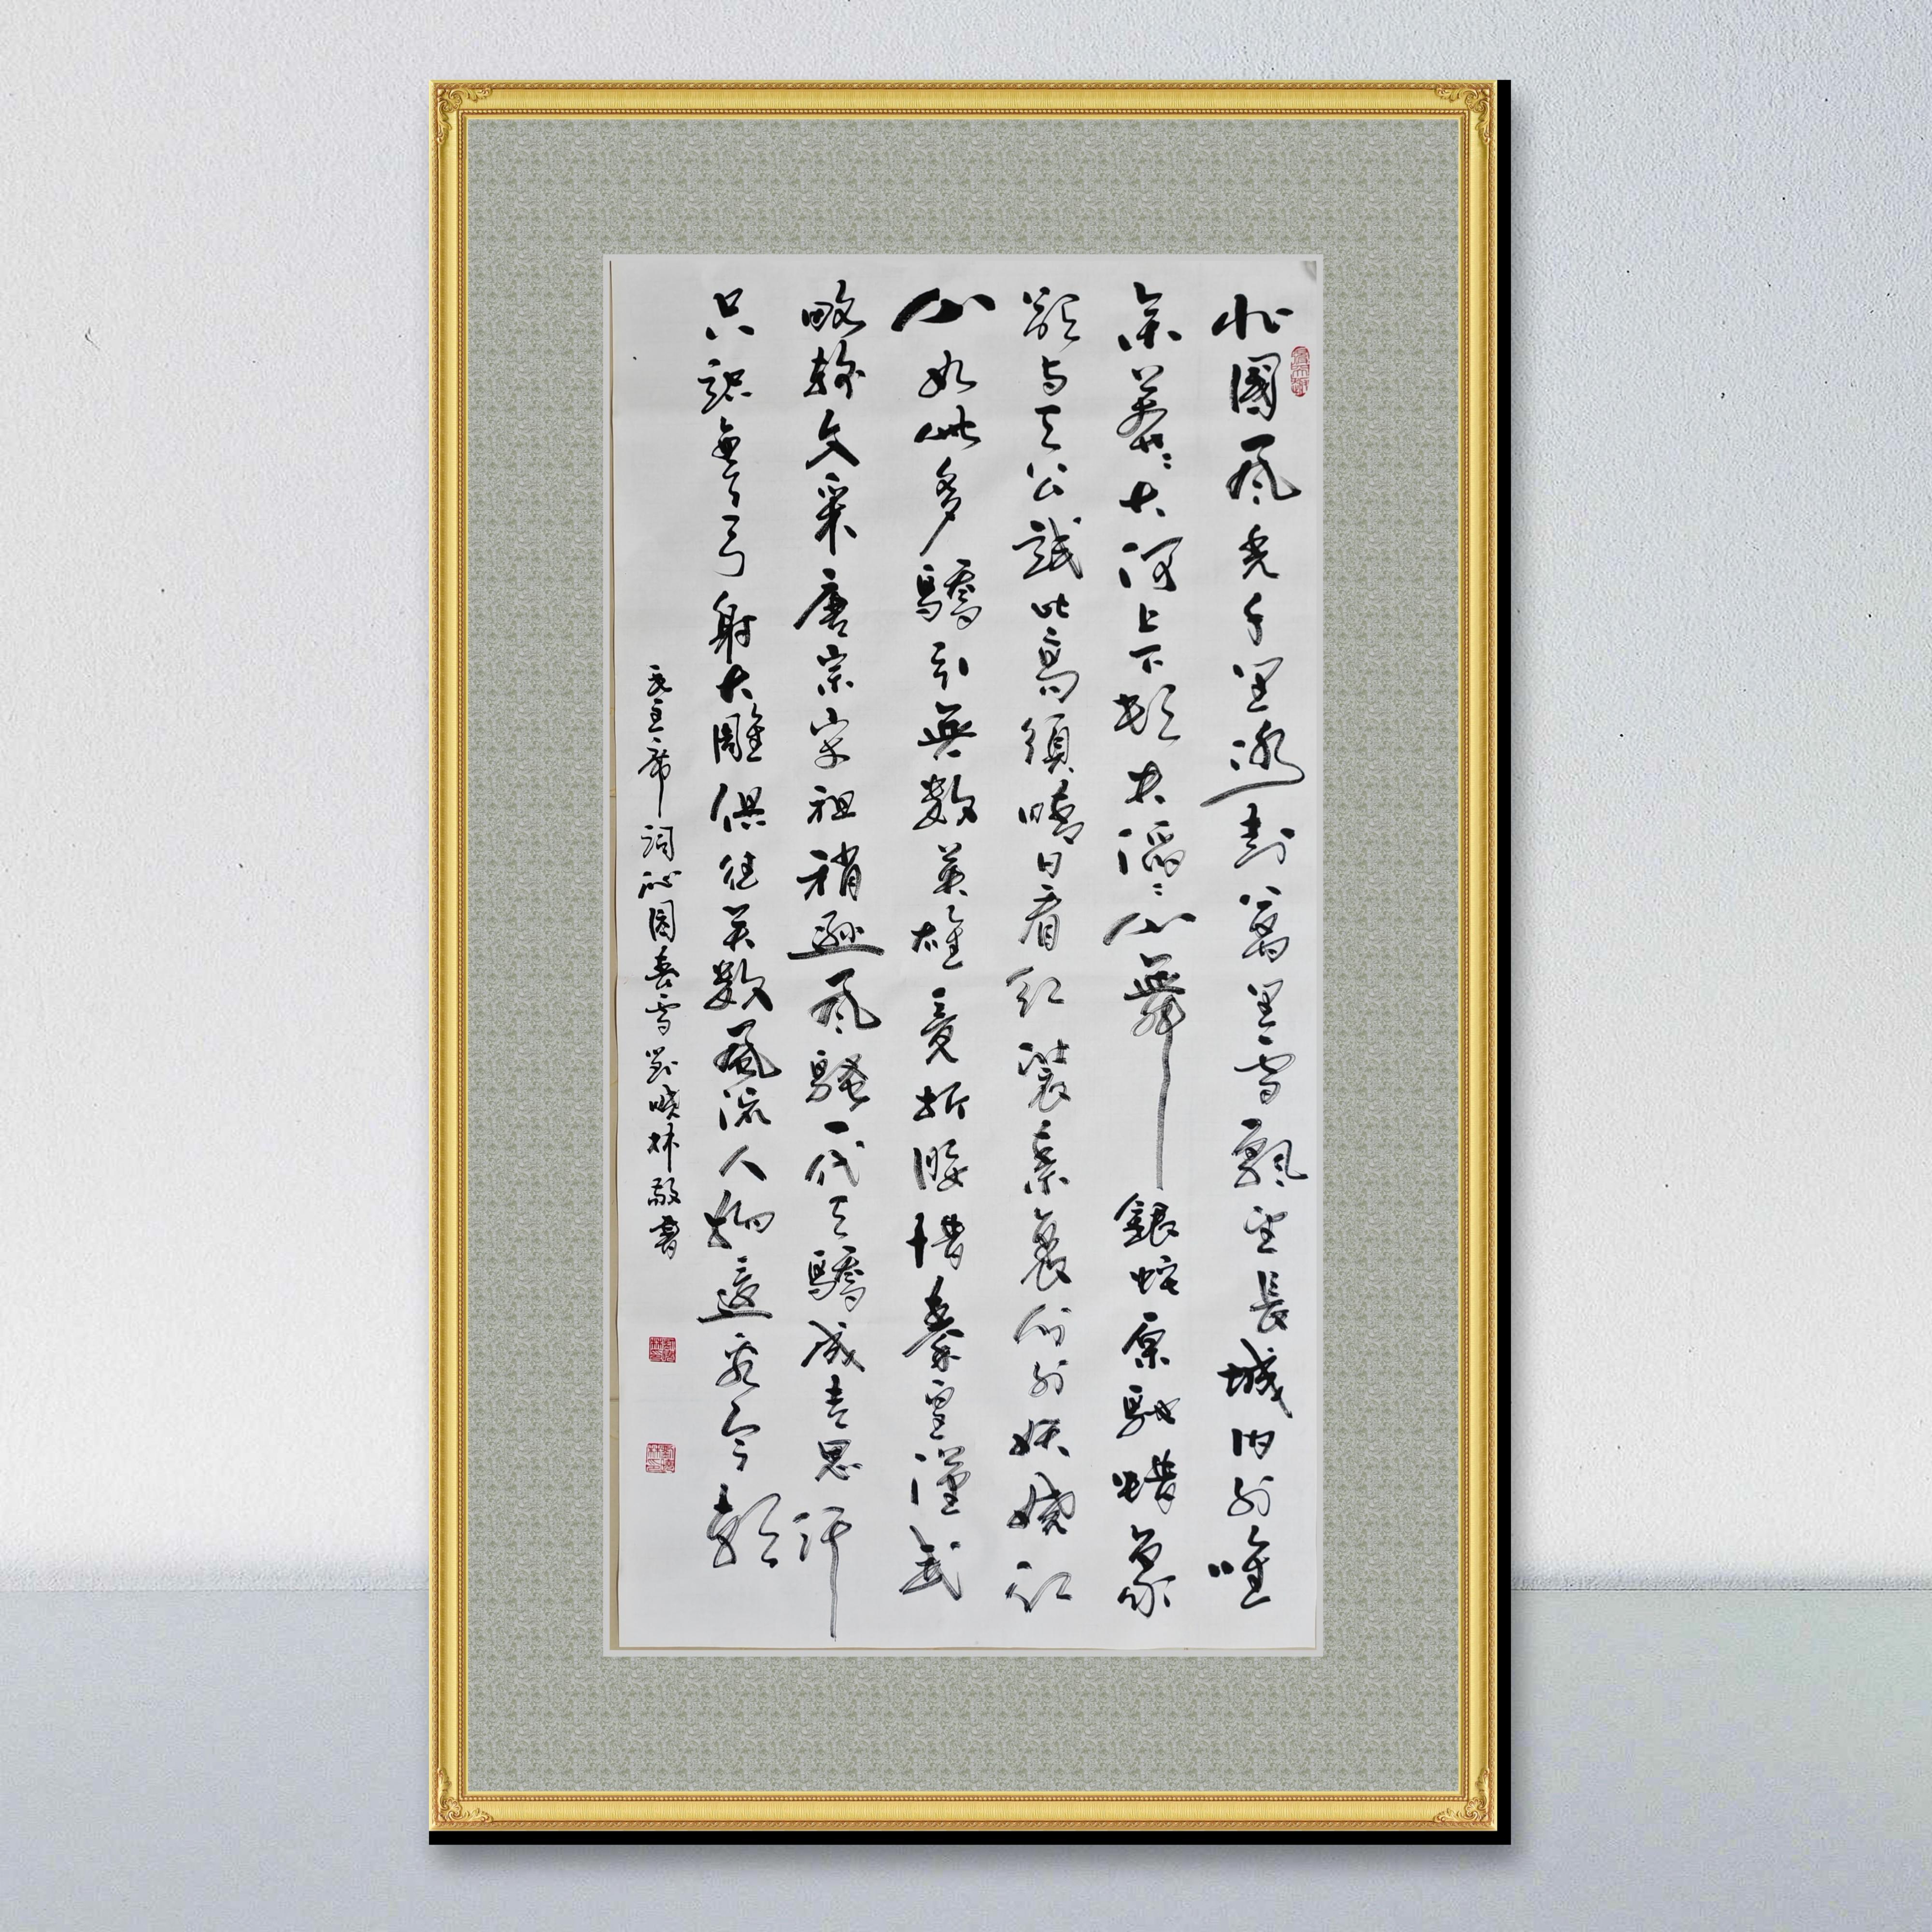 北國風光千里冰封萬里雪飄望長城内外唯
余莽〻大河上下頓失滔〻山舞銀蛇原馳蜡象
欲与天公試比高須晴日看紅裝素裹分外妖嬈江
山如此多驕引無數英雄競折腰惜秦皇漢武
略輸文采唐宗宋祖稍遜風騷一代天驕成吉思汗
只識彎弓射大雕俱往矣數風流人物還看今朝
毛主席詞沁園春雪劉曉林敬書